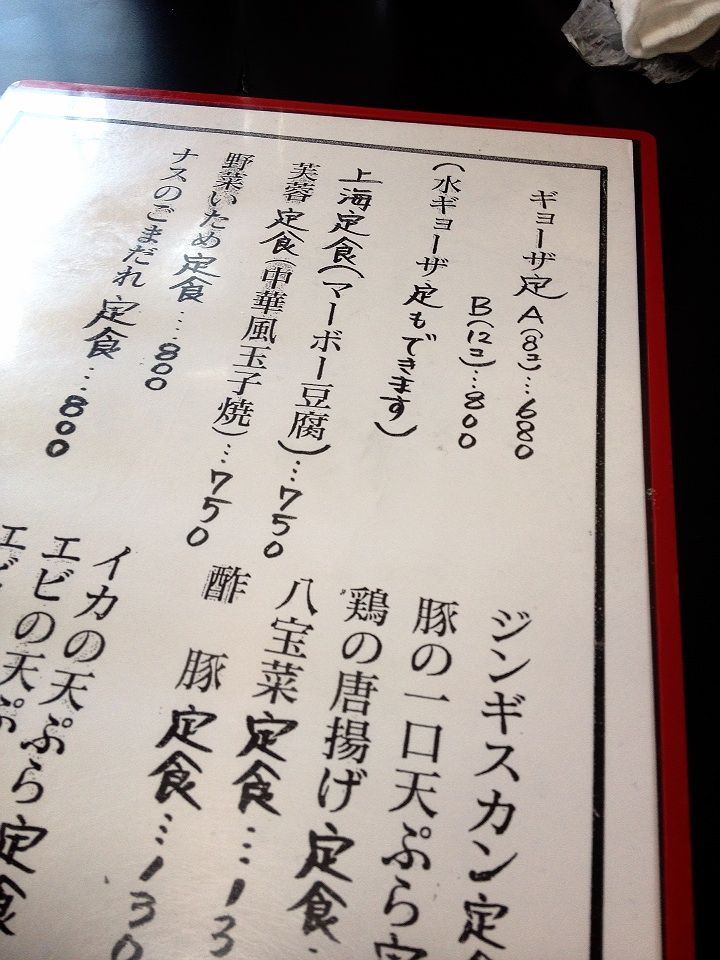 ギョーザ定A(8コ)…680
B(12コ)…800
(水ギョーザ定もできます)
上海定食(マーボー豆腐)…750
芙蓉定食(中華風玉子焼)…750
野菜いため定食…800
ナスのごまだれ定食…800
ジンギスカン定
豚の一口天ぷら定
鶏の唐揚げ定食
八宝菜定食…13
酢豚定食…130
イカの天ぷら定食
エビの天ぷら
エビ